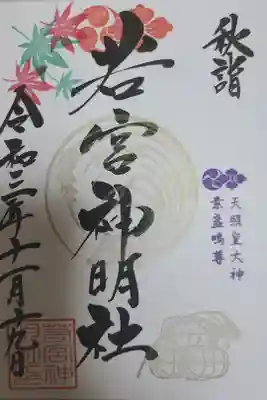 秋詣
天照皇大神
素盞嗚尊
若宮神明社
令和三年十一月十九日